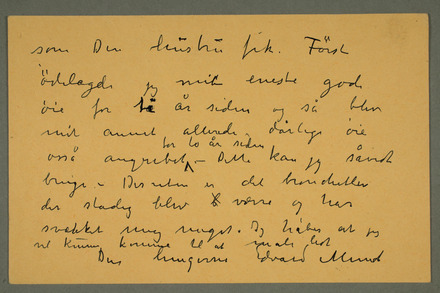 som Din hustru fik. Først
ødelagde jeg mit eneste gode
øie for to år siden og så blev
mit annet allerede dårlige øie
for to år siden
også angrebet – Dette kan jeg såvidt
bruge – Desuten er det bronchitten
der stadig blir værre og har
svækket mig meget. Jeg håber at jeg
vil kunne komme til at male lidt
Din hengivne Edvard Munch